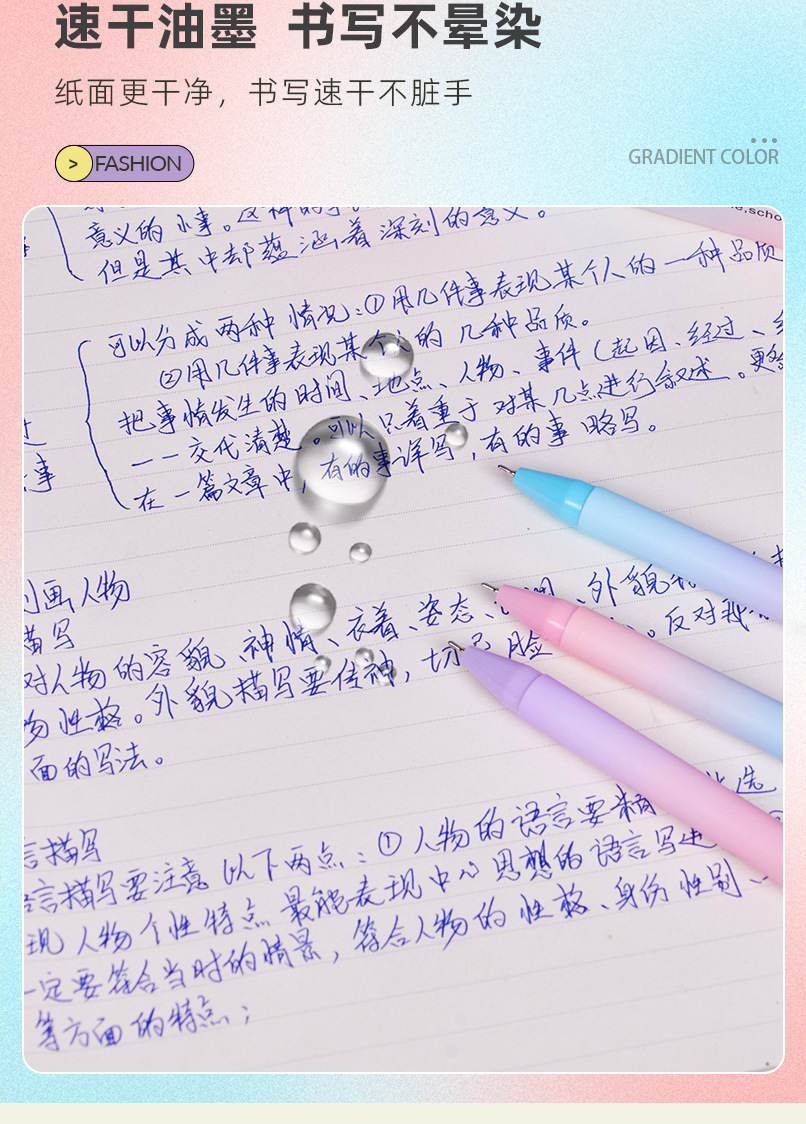 速干油墨 书写不晕染
纸面更干净，书写速干不脏手
> FASHION
GRADIENT COLOR
意义的小事。这种的
但是其中却蕴涵着深刻的含义。
可以分成两种情况：①用几件事表现某个人的一种品质
②用几件事表现某个人的几种品质。
把事情发生的时间、地点、人物、事件（起因、经过、
一一交代清楚。可以只着重于对某几点进行叙述。更
在一篇文章中，有的事详写，有的事略写。
事
刻画人物
描写
对人物的容貌、神情、衣着、姿态、外貌
物性格。外貌描写要传神，切忌脸。反对
面的写法。
言描写
语言描写要注意以下两点：①人物的语言要精
现人物个性特点最能表现中心思想的语言写进
一定要符合当时的情景，符合人物的性格、身份性别、
等方面的特点；